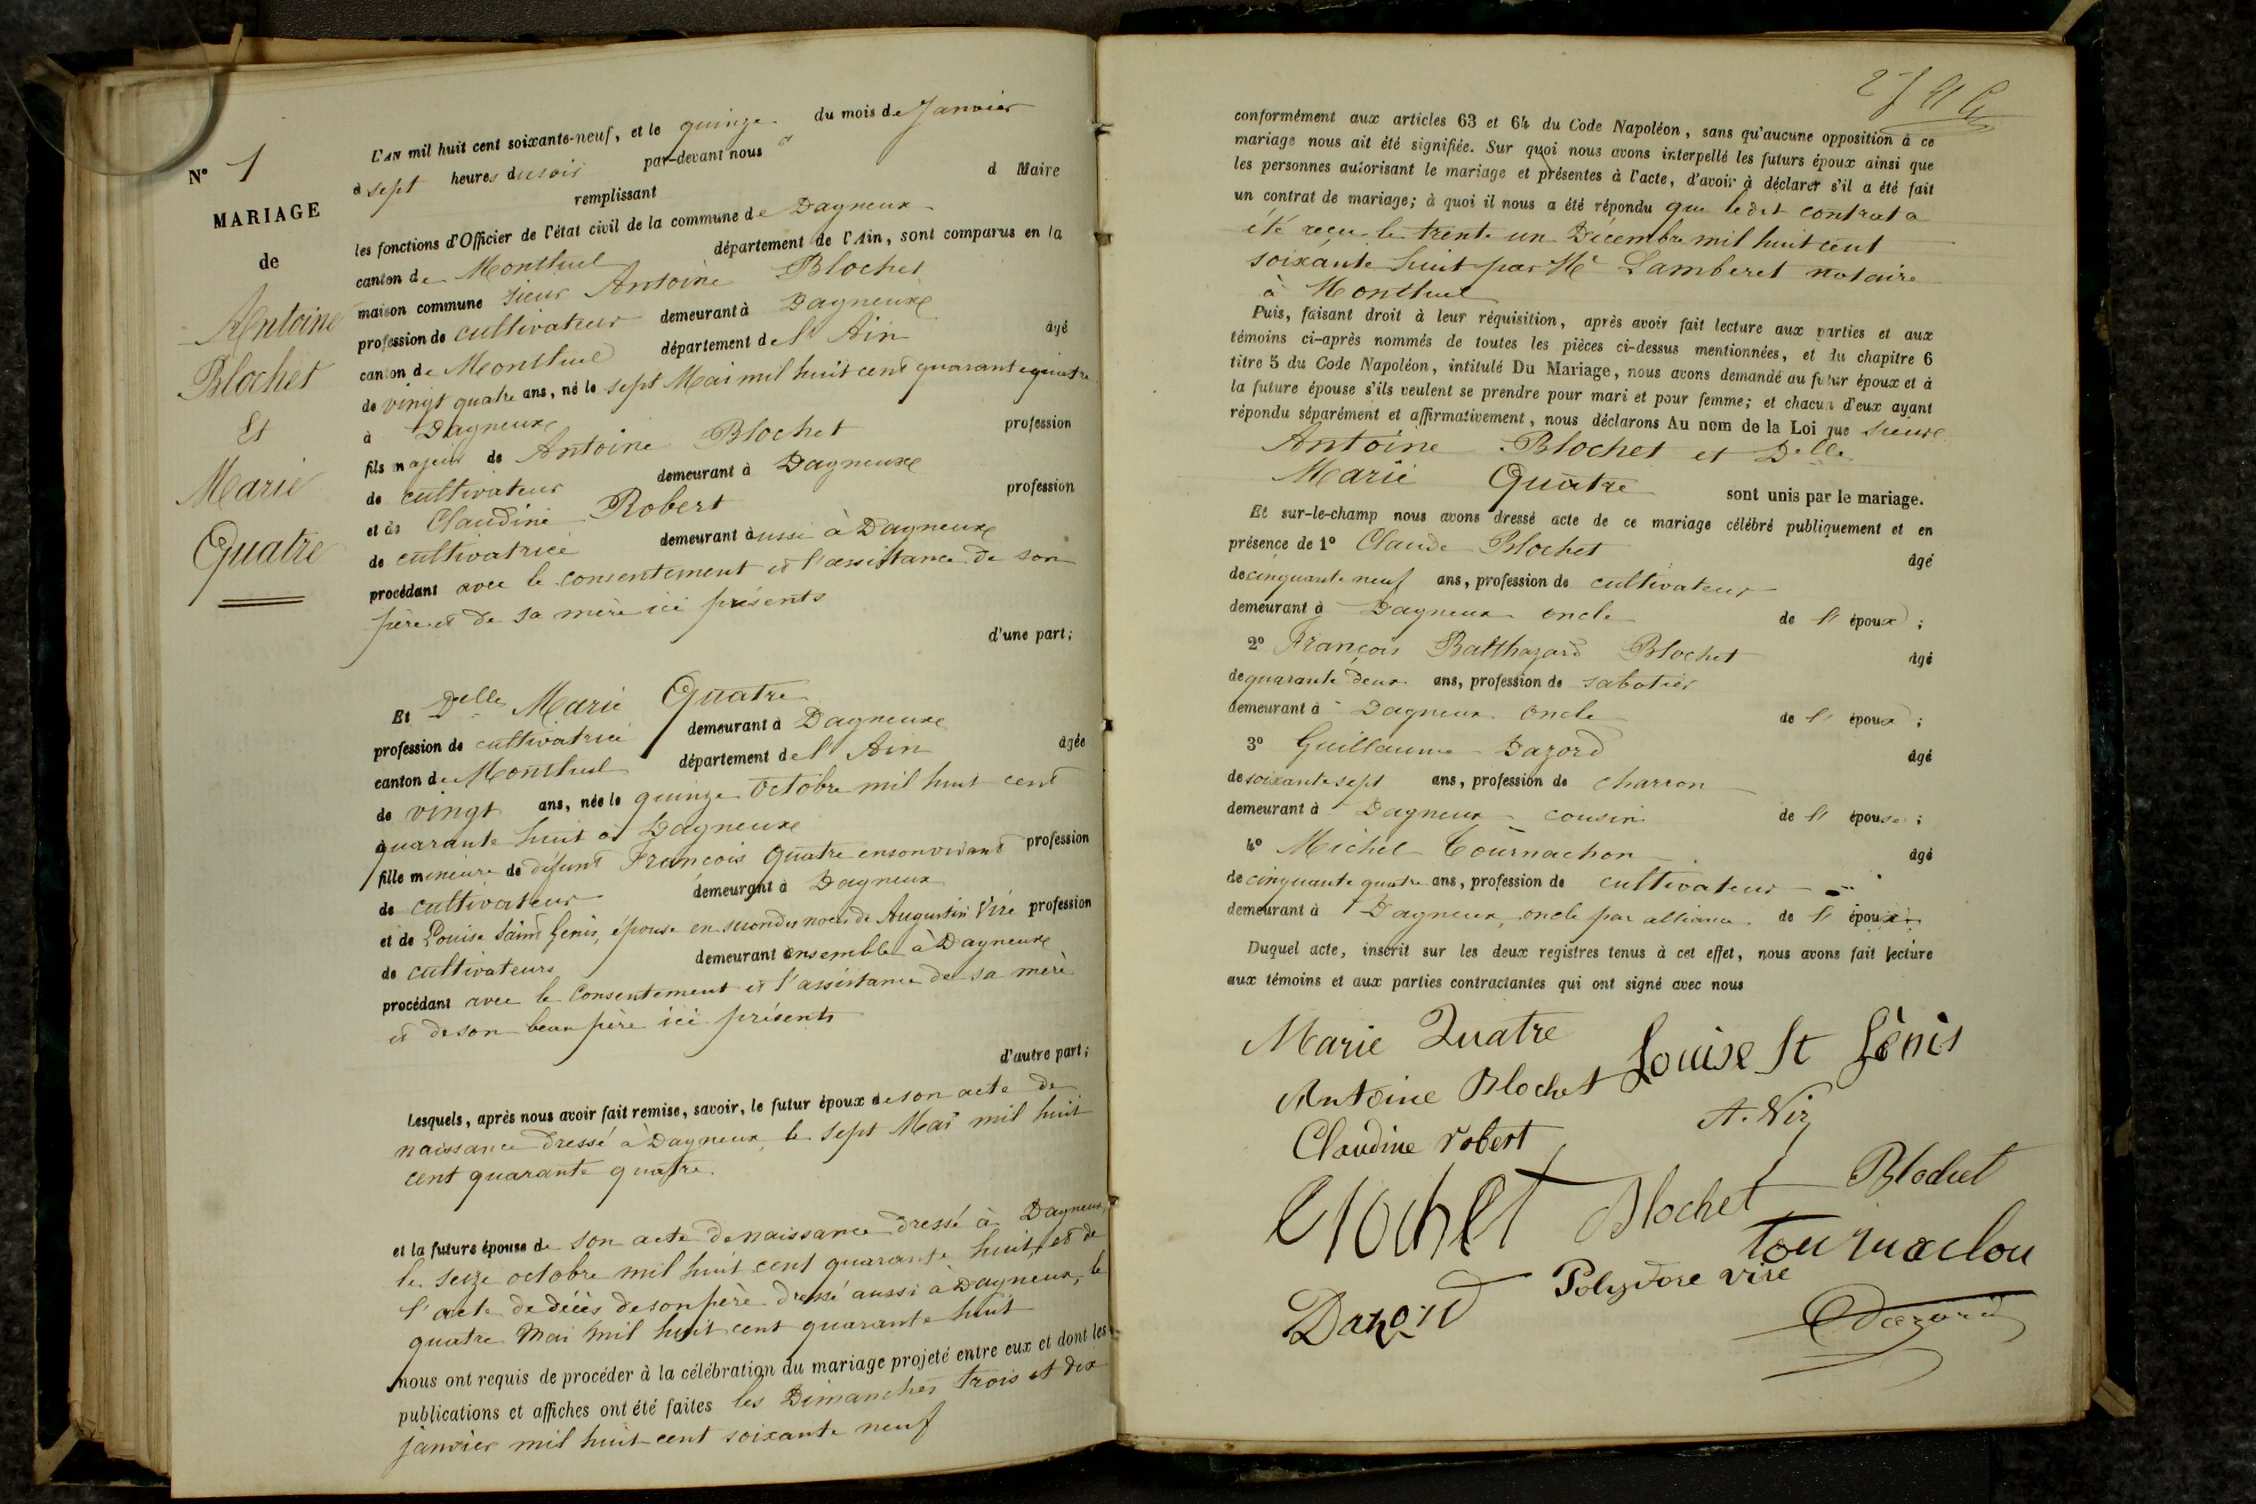 N° 1
MARIAGE
de
Antoine
Blochet
Et
Marie
Quatre
L'AN mil huit cent soixante-neuf, et le quinze du mois de Janvier
à sept heures du soir par-devant nous
remplissant d Maire
les fonctions d'Officier de l'état civil de la commune de Dagneux
canton de Montluel département de l'Ain, sont comparus en la
maison commune sieur Antoine Blochet
profession de cultivateur demeurant à Dagneux
canton de Montluel département de l'Ain âgé
de vingt quatre ans, né le sept Mai mil huit cent quarante quatre
à Dagneux
fils majeur de Antoine Blochet profession
de cultivateur demeurant à Dagneux
et de Claudine Robert profession
de cultivatrice demeurant aussi à Dagneux
procédant avec le consentement et l'assistance de son
père et de sa mère ici présents
d'une part;
Et Delle Marie Quatre
profession de cultivatrice demeurant à Dagneux
canton de Montluel département de l'Ain âgée
de vingt ans, née le quinze Octobre mil huit cent
quarante huit à Dagneux
fille mineure de défunt François Quatre en son vivant profession
de cultivateur demeurant à Dagneux
et de Louise Saint Genis, épouse en secondes noces de Augustin Viré profession
de cultivateurs demeurant ensemble à Dagneux
procédant avec le consentement et l'assistance de sa mère
et de son beau père ici présents
d'autre part;
Lesquels, après nous avoir fait remise, savoir, le futur époux de son acte de
naissance dressé à Dagneux, le sept Mai mil huit
cent quarante quatre.
et la future épouse de son acte de naissance dressé à Dagneux,
le seize octobre mil huit cent quarante huit, et de
l'acte de décès de son père dressé aussi à Dagneux, le
quatre Mai mil huit cent quarante huit
nous ont requis de procéder à la célébration du mariage projeté entre eux et dont les
publications et affiches ont été faites les Dimanches trois et dix
janvier mil huit cent soixante neuf
conformément aux articles 63 et 64 du Code Napoléon, sans qu'aucune opposition à ce
mariage nous ait été signifiée. Sur quoi nous avons interpellé les futurs époux ainsi que
les personnes autorisant le mariage et présentes à l'acte, d'avoir à déclarer s'il a été fait
un contrat de mariage; à quoi il nous a été répondu que ledit contrat a
été reçu le trente un Décembre mil huit cent
soixante huit par Me Lamberet notaire
à Montluel
Puis, faisant droit à leur réquisition, après avoir fait lecture aux parties et aux
témoins ci-après nommés de toutes les pièces ci-dessus mentionnées, et du chapitre 6
titre 5 du Code Napoléon, intitulé Du Mariage, nous avons demandé au futur époux et à
la future épouse s'ils veulent se prendre pour mari et pour femme; et chacun d'eux ayant
répondu séparément et affirmativement, nous déclarons Au nom de la Loi que sieur
Antoine Blochet et Delle
Marie Quatre sont unis par le mariage.
Et sur-le-champ nous avons dressé acte de ce mariage célébré publiquement et en
présence de 1° Claude Blochet âgé
de cinquante neuf ans, profession de cultivateur
demeurant à Dagneux oncle de l'époux ;
2° François Balthazard Blochet âgé
de quarante deux ans, profession de sabotier
demeurant à Dagneux oncle de l'époux ;
3° Guillaume Dazord âgé
de soixante sept ans, profession de charron
demeurant à Dagneux cousin de l'épouse ;
4° Michel Tournachon âgé
de cinquante quatre ans, profession de cultivateur
demeurant à Dagneux, oncle par alliance de l'époux
Duquel acte, inscrit sur les deux registres tenus à cet effet, nous avons fait lecture
aux témoins et aux parties contractantes qui ont signé avec nous
Marie Quatre Louise St Génis
Antoine Blochet
Claudine robert
Blochet Blochet
Polydore viré
Dazord Dazord